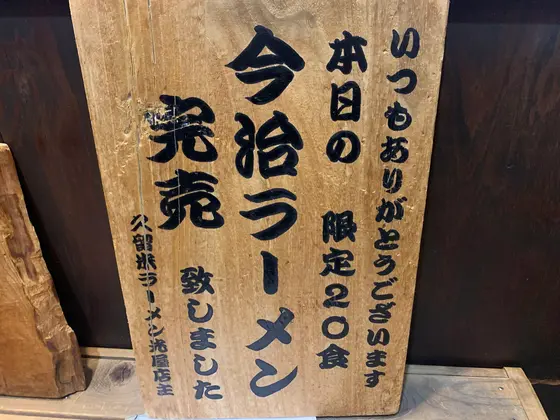 いつもありがとうございます
本日の 限定20食
今治ラーメン
完売 致しました
久留米ラーメン洸屋店主